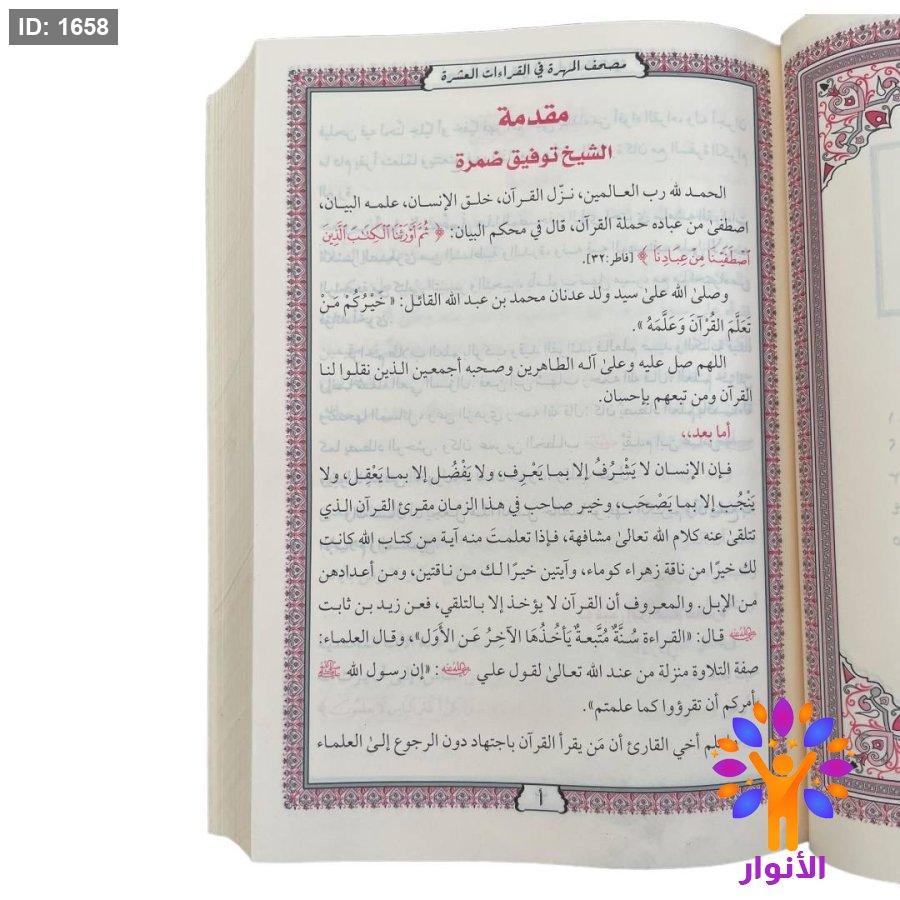 ID: 1658
مصحف المهرة في القراءات العشرة
مقدمة
الشيخ توفيق ضمرة
الحمد لله رب العالمين، نزّل القرآن، خلق الإنسان، علمه البيان،
اصطفىٰ من عباده حملة القرآن، قال في محكم البيان: ﴿ ثُمَّ أَوْرَثْنَا الْكِتَٰبَ الَّذِينَ
اصْطَفَيْنَا مِنْ عِبَادِنَا ﴾ [فاطر:٣٢].
وصلىٰ الله علىٰ سيد ولد عدنان محمد بن عبد الله القائل: « خَيْرُكُمْ مَنْ
تَعَلَّمَ القُرْآنَ وَعَلَّمَهُ ».
اللهم صل عليه وعلىٰ آله الطاهرين وصحبه أجمعين الذين نقلوا لنا
القرآن ومن تبعهم بإحسان.
أما بعد،،
فإن الإنسان لا يَشْرُفُ إلا بما يَعْرِف، ولا يَفْضُل إلا بما يَعْقِل، ولا
يَنْجُب إلا بما يَصْحَب، وخير صاحب في هذا الزمان مقرئ القرآن الذي
تتلقىٰ عنه كلام الله تعالىٰ مشافهة، فإذا تعلمتَ منه آية من كتاب الله كانت
لك خيرًا من ناقة زهراء كوماء، وآيتين خيرًا لك من ناقتين، ومن أعدادهن
من الإبل. والمعروف أن القرآن لا يؤخذ إلا بالتلقي، فعن زيد بن ثابت
قال: «القراءة سُنَّةٌ مُتَّبعةٌ يَأخُذُهَا الآخِرُ عَن الأَوَل»، وقال العلماء:
صفة التلاوة منزلة من عند الله تعالىٰ لقول علي : «إن رسول الله ﷺ
يأمركم أن تقرؤوا كما علمتم».
أخي القارئ أن مَن يقرأ القرآن باجتهاد دون الرجوع إلىٰ العلماء
أ
الأنوار